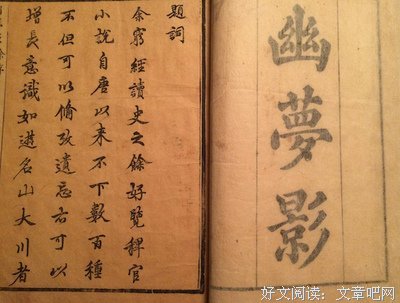 幽夢影
題詞
余窮經讀史之餘好覽稗官
小說自唐以來不下數百種
不但可以備攷遺忘亦可以
增長意識如遊名山大川者
好文阅读：文章吧网